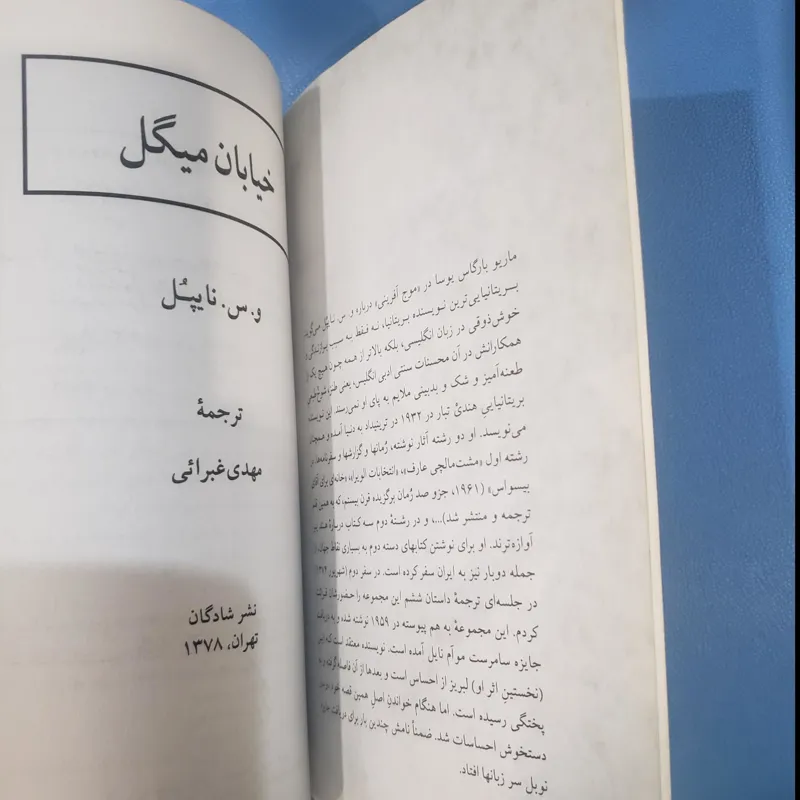 خیابان میگل
و. س. نایپُل
ترجمهٔ
مهدی غبرائی
نشر شادگان
تهران، ۱۳۷۸
ماریو بارگاس یوسا در «موج آفرینی» درباره و. س. نایپُل می‌گوید:
بریتانیایی‌ترین نویسنده بریتانیا، نه فقط به سبب برازندگی و
خوش‌ذوقی در زبان انگلیسی، بلکه بالاتر از همه چون هیچ یک از
همکارانش در آن محسنات سنتی ادبی انگلیس، یعنی طنز، شوخ‌طبعی
طعنه‌آمیز و شک و بدبینی ملایم به پای او نمی‌رسند. این نویسنده
بریتانیاییِ هندیُ تبار در ۱۹۳۲ در ترینیداد به دنیا آمده و همچنان
می‌نویسد. او دو رشته آثار نوشته، رُمانها و گزارشها و سفرنامه‌ها. در
رشته اول «مشت‌مالچی عارف»، «انتخابات الویرا»، «خانه‌ای برای آقای
بیسواس» (۱۹۶۱، جزو صد رُمان برگزیده قرن بیستم، که به همین قلم
ترجمه و منتشر شد)...، و در رشتهٔ دوم سه کتاب دربارهٔ هند
آوازه‌ترند. او برای نوشتن کتابهای دسته دوم به بسیاری نقاط جهان، از
جمله دوبار نیز به ایران سفر کرده است. در سفر دوم (شهریور ۱۳۷۴)
در جلسه‌ای ترجمهٔ داستان ششم این مجموعه را حضورشان قرائت
کردم. این مجموعهٔ به هم پیوسته در ۱۹۵۹ نوشته شده و به دریافت
جایزه سامرست موآم نایل آمده است. نویسنده معتقد است که این
(نخستین اثر او) لبریز از احساس است و بعدها از آن فاصله گرفته و به
پختگی رسیده است. اما هنگام خواندنِ اصلِ همین قصه خود
دستخوش احساسات شد. ضمناً نامش چندین بار برای دریافت جایزه
نوبل سر زبانها افتاد.